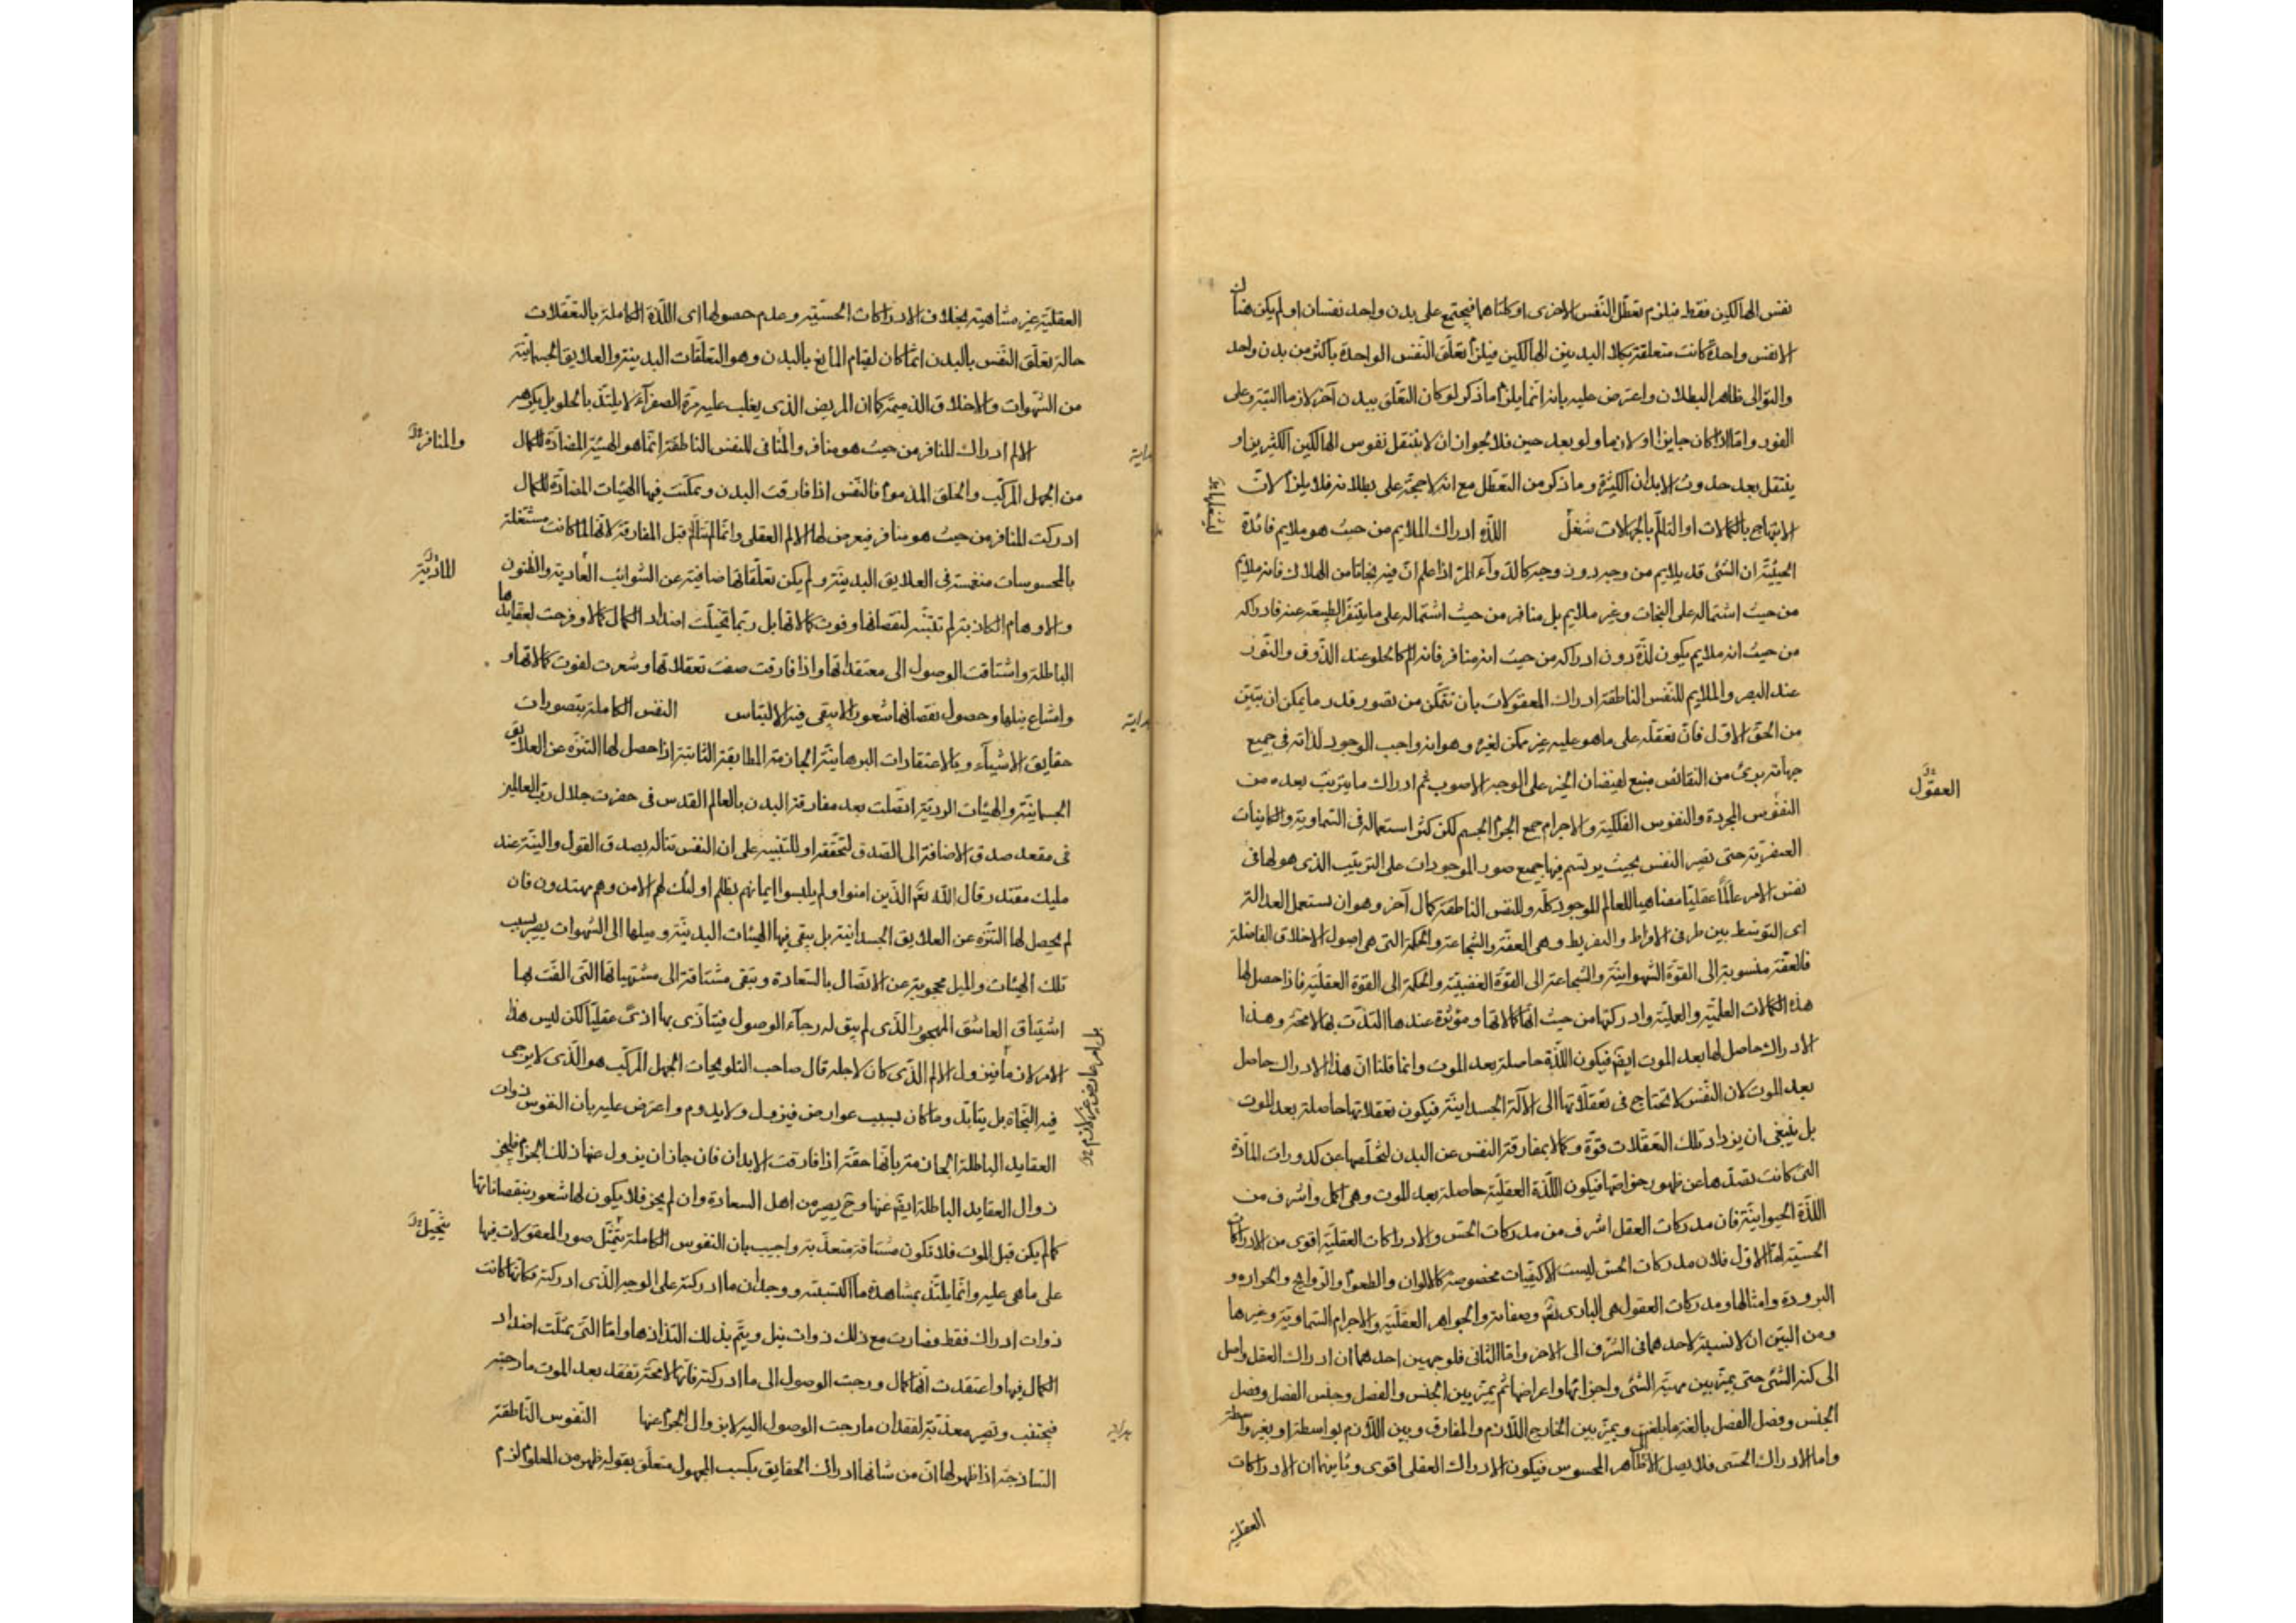 نفس الهالكين فقط فيلزم تعطّل النّفس الاخرى او كلتاهما فيجتمع على بدن واحد نفسان او لم يكن هناك
الانفس واحدة كانت متعلقة بكلا البدنين الهالكين فيلزم تعلّق النّفس الواحدة باكثر من بدن واحد
والتوالى ظاهر البطلان واعترض عليه بانه انّما يلزم ما ذكر لو كان التعلّق ببدن آخر لازما البتة وعلى
الفور وامّا اذا كان جايزا او لازما ولو بعد حين فلا لجواز ان لا ينتقل نفوس الهالكين الكثيرين او
ينتقل بعد حدوث الابدان الكثيرة وما ذكر من التعطّل مع انّه لا حجّة على بطلانه فلا يلزم لانّ
الابتهاج بالكمالات او التالّم بالجهالات شغل اللّذّة ادراك الملايم من حيث هو ملايم فائدة
الحيثيّة ان الشئ قد يلايم من وجه دون وجه كالدّوآء المرّ اذا علم انّ فيه نجاتا من الهلاك فانه ملايم
من حيث اشتماله على النجات وغير ملايم بل منافر من حيث اشتماله على ما يتنفّر الطبيعة عنه فادراكه
من حيث انه ملايم يكون لذّة دون ادراكه من حيث انه منافر فانه الم كالحلو عند الذّوق والنّور
عند البصر والملايم للنّفس الناطقة ادراك المعقولات بان تتمّكن من تصور قدر ما يمكن ان يتبيّن
من الحقّ الاوّل فانّ تعقله على ما هو عليه غير ممكن لغيره وهو انه واجب الوجود لذاته فى جميع
جهاته برىء من النقائص منبع لفيضان الخير على الوجه الاصوب ثم ادراك ما يترتّب بعده من
العقول
النفوس المجردة والنفوس الفلكية والاجرام جمع الجرم الجسم لكن كثر استعماله فى السّماوية والكاينات
العنصرية حتى تصير النفس بحيث يرتسم فيها جميع صور الموجودات على الترتيب الذى هو لها فى
نفس الامر عالمًا عقليّا مضاهيا للعالم الموجود كلّه وللنفس الناطقة كمال آخر وهو ان تستعمل العدالة
اى التوسّط بين طرفى الافراط والتفريط وهى العفّة والشّجاعة والحكمة التى هى اصول الاخلاق الفاضلة
فالعفّة منسوبة الى القوّة الشّهوانيّة والشّجاعة الى القوّة الغضبيّة والحكمة الى القوة العقليّة فاذا حصل لها
هذه الكمالات العلميّة والعمليّة وادركتها من حيث انّها كمالاتها ومؤثرة عندها التذّت بها لا محة وهذا
الادراك حاصل لها بعد الموت ايضً فيكون اللّذّة حاصلة بعد الموت وانما قلنا انّ هذا الادراك حاصل
بعد الموت لان النّفس لا تحتاج فى تعقّلاتها الى الآلة الجسدانيّة فيكون تعقلاتها حاصلة بعد الموت
بل ينبغى ان يزداد تلك التعقّلات قوّة وكمالا بمفارقة النفس عن البدن لتخلّصها عن كدورات المادّة
التى كانت تصدّها عن ظهور خواصّها فيكون اللّذّة العقليّة حاصلة بعد الموت وهى اكمل واشرف من
اللّذّة الحيوانيّة فان مدركات العقل اشرف من مدركات الحسّ والادراكات العقليّة اقوى من الادراكات
الحسّيّة امّا الاوّل فلان مدركات الحسّ ليست الا كيفيّات مخصوصة كالالوان والطعوم والرّوايح والحراره و
البرودة وامثالها ومدركات العقول هى البارى تعً وصفاته والجواهر العقليّة والاجرام السّماوية وغيرها
ومن البيّن ان لا نسبة لاحدهما فى الشّرف الى الاخر وامّا الثّانى فلوجهين احدهما ان ادراك العقل واصل
الى كنه الشّئ حتى يميّز بين مهيّة الشئ واجزائها واعراضها ثم يميّز بين الجنس والفصل وجنس الفصل وفصل
الجنس وفصل الفصل بالغة ما بلغت ويميّز بين الخارج اللّازم والمفارق وبين اللّازم بواسطة او بغير واسطة
واما الادراك الحسّى فلا يصل الّا الى ظاهر المحسوس فيكون الادراك العقلى اقوى وثانيهما ان الادراكات
العقلية
العقليّة غير متناهية بخلاف الادراكات الحسّيّة وعدم حصولها اى اللّذّة الكاملة بالتعقّلات
حالة تعلّق النّفس بالبدن انّما كان لقيام المانع بالبدن وهو التعلّقات البدنية والعلايق الجسمانيّة
من الشّهوات والاخلاق الذميمة كما ان المريض الذى يغلب عليه مرّة الصفرآء لا يلتذّ بالحلو بل يكرهه
هداية الالم ادراك المنافر من حيث هو منافر والمنافى للنفس الناطقة انّما هو الهيئة المضادّة للكمال
والمنافر
من الجهل المركّب والخلق المذموم فالنّفس اذا فارقت البدن وتمكّنت فيها الهيئات المضادّة للكمال
ادركت المنافر من حيث هو منافر فيعرض لها الالم العقلى وانّما لم تتالّم قبل المفارقة لانّها لما كانت مشتغلة
بالمحسوسات منغمسة فى العلايق البدنيّة ولم يكن تعلّقاتها صافية عن الشّوائب العادية والظنون
المادّيّة
والاوهام الكاذبة لم تتنبّه لنقصانها وفوت كمالاتها بل ربّما تخيّلت اضداد الكمال كمالا وفرحت لعقايدها
الباطلة واشتاقت الوصول الى معتقداتها واذا فارقت صفت تعقلاتها وشعرت لفوت كمالاتها و
وامتناع نيلها وحصول نقصانها شعورا لا يبقى فيه الالتباس النفس الكاملة بتصورات
هداية
حقايق الاشيآء وبالاعتقادات البرهانيّة الجازمة المطابقة الثابتة اذا حصل لها التنزّه عن العلايق
الجسمانيّة والهيئات الرديّة اتّصلت بعد مفارقة البدن بالعالم القدس فى حضرت جلال ربّ العالمين
فى مقعد صدق الاضافة الى الصّدق لتحقّقه او للتنبيه على ان النفس تناله بصدق القول والنيّة عند
مليك مقتدر قال اللّه تعً الّذين امنوا ولم يلبسوا ايمانهم بظلم اولئك لهم الامن وهم مهتدون فان
لم يحصل لها التنزّه عن العلايق الجسدانية بل يبقى فيها الهيئات البدنيّة وميلها الى الشّهوات يصير بسبب
تلك الهيئات والميل محجوبة عن الاتّصال بالسّعادة وتبقى مشتاقة الى مشتهياتها الّتى الفت بها
اشتياق العاشق المهجور الّذى لم يبق له رجآء الوصول فيتاذّى بها اذىً عقليّا لكن ليس هذا
الامر لازما فيزول الالم الّذى كان لاجله قال صاحب التلويحات الجهل المركّب هو الّذى لا يرجى
بل امر عارض غير لازم
فيه النّجاة بل يتأبّد وما كان بسبب عوارض فيزول ولا يدوم واعترض عليه بان النفوس ذوات
العقايد الباطلة الجازمة بانّها حقّة اذا فارقت الابدان فان جاز ان يزول عنها ذلك الجزم فليجز
زوال العقايد الباطلة ايضً عنها وح يصير من اهل السعادة وان لم يجز فلا يكون لها شعور بنقصاناتها
كما لم يكن قبل الموت فلا تكون مشتاقة متعذّبة واجيب بان النفوس الكاملة يتمثّل صور المعقولات فيها
يتخيّل
على ما هى عليه وانّما يلتذّ بمشاهدة ما اكتسبته ووجدان ما ادركته على الوجه الّذى ادركته فكانّها كانت
ذوات ادراك فقط فصارت مع ذلك ذوات نيل ويتمّ بذلك التذاذها وامّا التى تمثّلت اضداد
الكمال فيها واعتقدت انّها كمال ورجت الوصول الى ما ادركته فانّها لا محة تفقد بعد الموت ما رجته
فيخيب وتصير معذّبة لفقدان ما رجت الوصول اليه لا بزوال الجزم عنها النّفوس النّاطقة
هداية
السّاذجة اذا ظهر لها انّ من شانها ادراك الحقايق بكسب المجهول متعلّق بقوله ظهر من المعلوم لزم